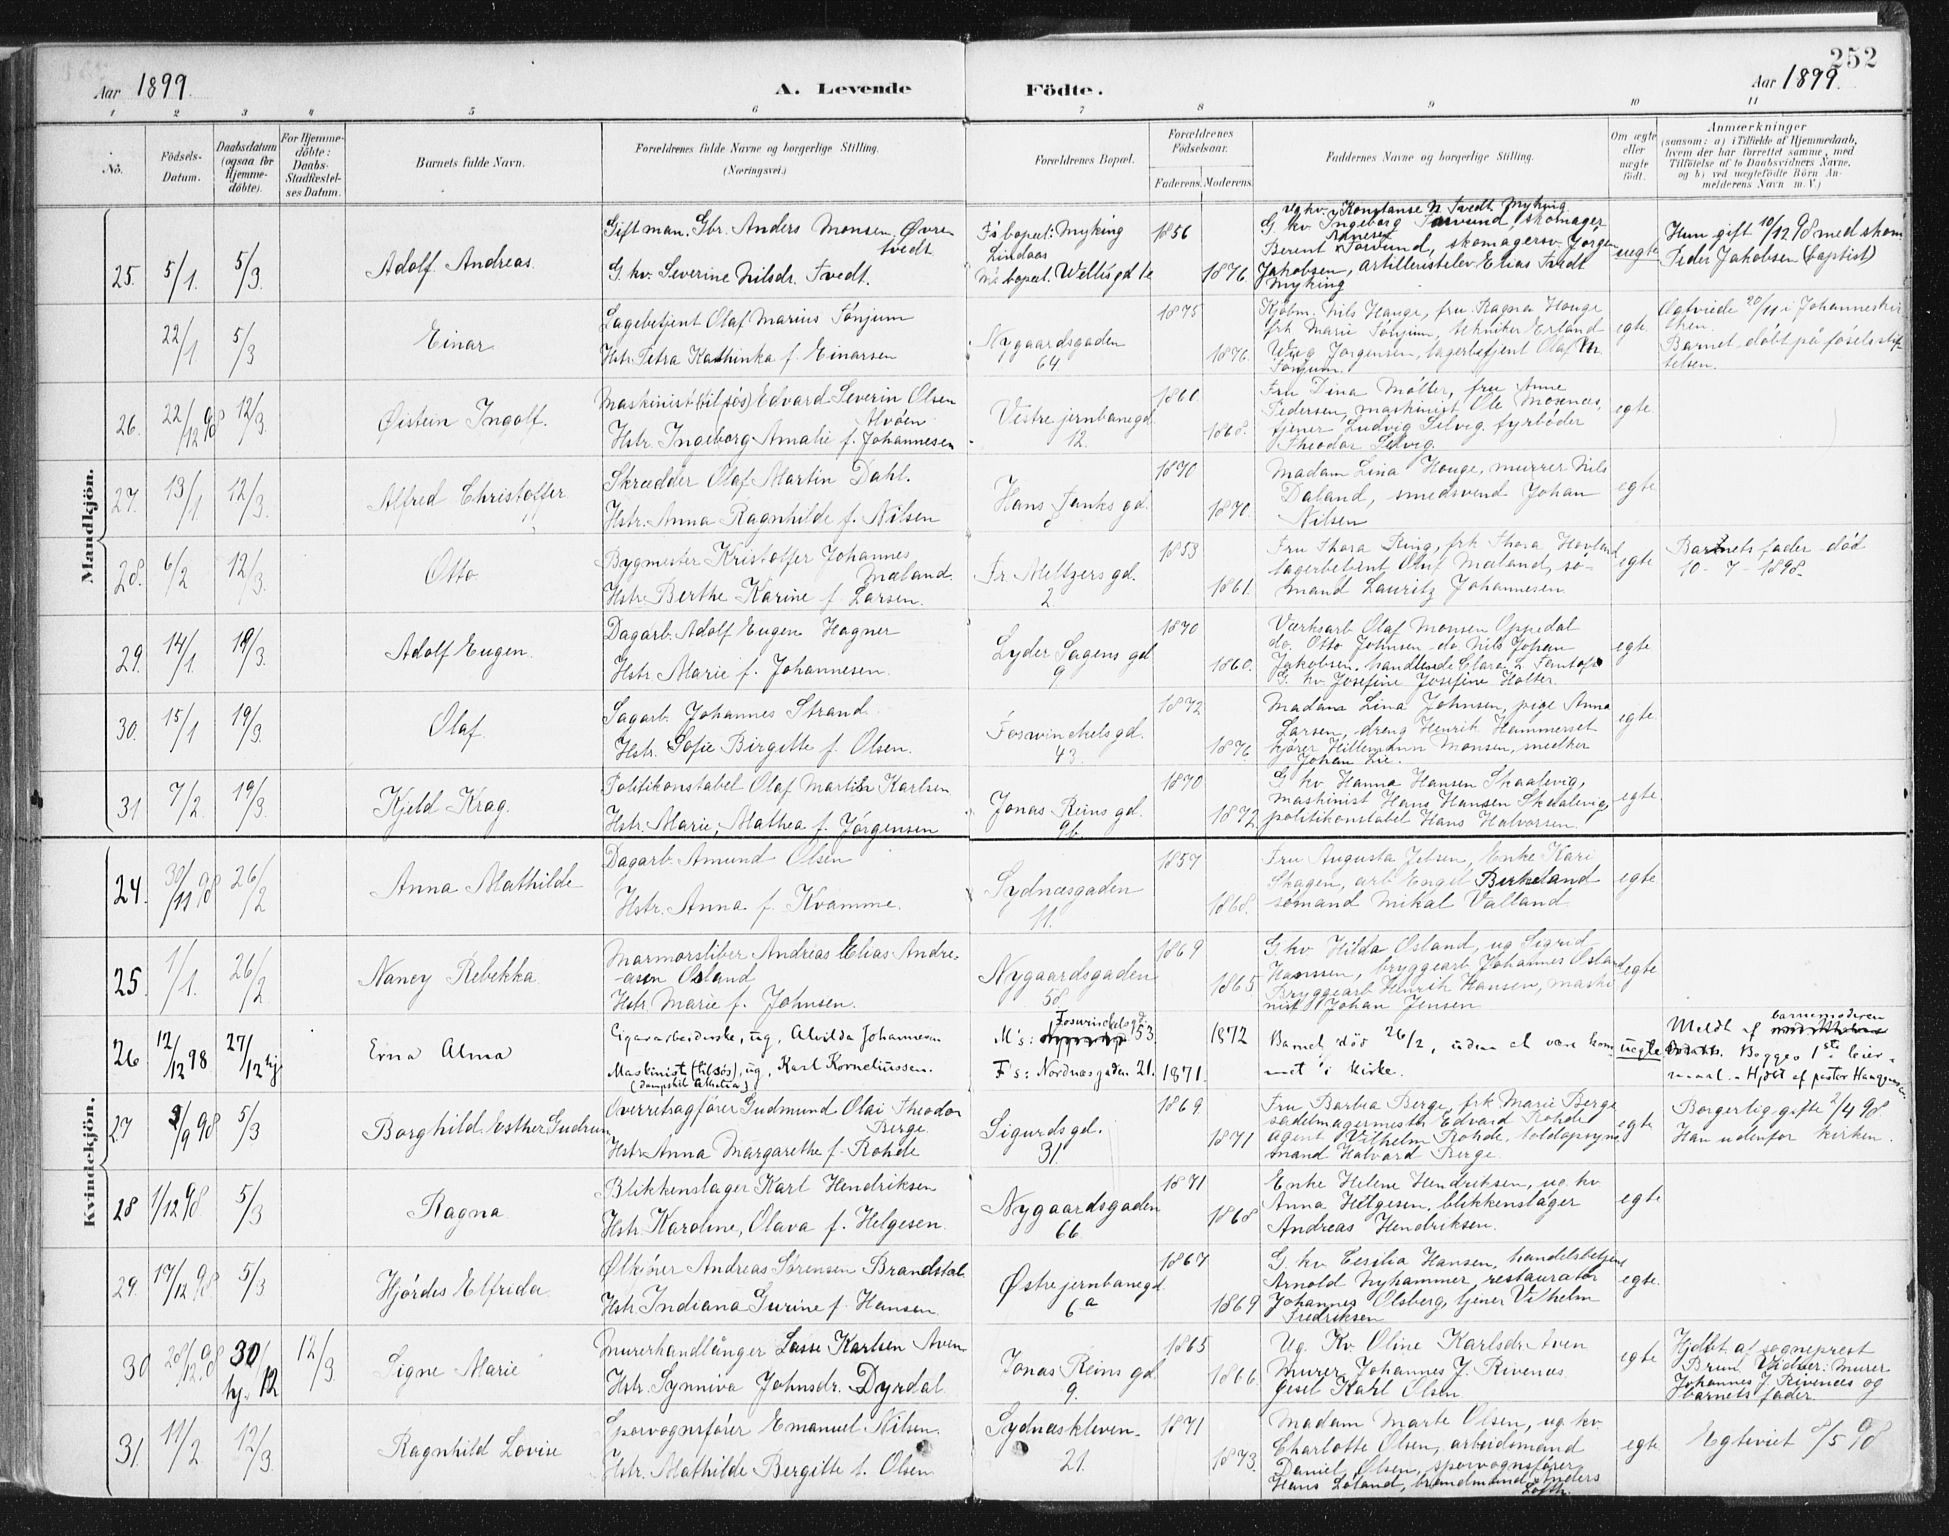 252
Aar 1899. A. Levende Födte. Aar 1899.
1 2 3 4 5 6 7 8 9 10 11
No.
Födsels-Datum.
Daabsdatum (ogsaa for Hjemme-döbte).
For Hjemme-döbte: Daabs-Stadfæstel-ses Datum.
Barnets fulde Navn.
Forældrenes fulde Navne og borgerlige Stilling. (Næringsvei.)
Forældrenes Bopæl.
Forældrenes Födselsaar.
Faderens. Moderens.
Faddernes Navne og borgerlige Stilling.
Om ægte eller uægte födt.
Anmærkninger
(saasom: a) i Tilfælde af Hjemmedaab, hvem der har forrettet samme, med Tilföielse af to Daabsvidners Navne, og b) ved uægtefödte Börn An-melderens Navn m. V.)
Mandkjön.
25. 5/1 5/3 Adolf Andreas.
Gift man. Gbr. Anders Monsen Øvre Tvedt
G. kv. Severine Nilsdr. Tvedt.
F's bopæl: Myking Lindaas
M's bopæl. Weltisgd 1c
1856 1876.
Ug kv. Konstanse N. Tvedt Myking
G. kv Ingeborg skomager
Berent skomagersv. Jørgen
Jakobsen, artillerielev Elias Tvedt
Myking
uegte
Hun gift 10/12 98 med skom.
Peder Jakobsen (baptist)
22/1 5/3 Einar
Lagebetjent Olaf Marius Sönjum
Hstr. Petra Kathinka f. Einarsen
Nygaardsgaden 64
1875 1876.
Kjöbm. Nils Hauge, fru Ragna Hauge
frk Marie Sönjum, tekniker Erland
Wiig Jörgensen, lagerbetjent Olaf M.
Sönjum.
egte
Egteviede 20/11 i Johanneskir-
ken.
Barnet döbt på föselsstif-
telsen.
26. 22/12 98 12/3 Øistein Ingolf.
Maskinist (tilsös) Edvard Severin Olsen
Alvöen
Hstr. Ingeborg Amalie f. Johannesen
Vestre jernbanegd 12.
1860 1868.
Fru Dina Möller, fru Anne
Pedersen, maskinist Ole Mosenæs,
tjener Ludvig Selvig, fyrböder
Theodor Selvig.
egte
27. 13/1 12/3. Alfred Christoffer
Skrædder Olaf Martin Dahl.
Hstr. Anna Ragnhilde f. Nilsen
Hans Tanks gd.
1870 1870.
Madam Lina Houge, murer Nils
Daland, smedsvend Johan
Nilsen
egte
28. 6/2 12/3 Otto
Bygmester Kristoffer Johannes
Mæland.
Hstr. Berthe Karine f. Larsen.
Fr. Meltzers gd. 2
1853 1861.
Fru Thora Ring, frk Thora Hovland
lagerbetjent Oluf Mæland, sö-
mand Lauritz Johannesen.
egte
Barnets fader död
10 - 7 - 1898.
29. 14/1 19/3. Adolf Eugen.
Dagarb. Adolf Eugen Hagner
Hstr Marie f. Johannesen.
Lyder Sagens gd 9
1870 1860.
Værksarb Olaf Monsen Oppedal
do. Otto Johnsen do. Nils Johan
Jakobsen, handlende Clara L. Fantoft
G. kv Josefine Josefine Holter.
egte
30. 15/1 19/3. Olaf.
Sagarb. Johannes Strand
Hstr. Sofie Birgitte f. Olsen.
Foswinckels gd. 43.
1872 1876
Madam Lina Johnsen, pige Anna
Larsen, dreng Henrik Hammerset
kjörer Hillemann Monsen, snedker
Johan Lie.
egte
31 7/2. 19/3. Kjeld Krag.
Politikonstabel Olaf Martin Karlsen
Hstr. Marie, Mathea f. Jörgensen
Jonas Reins gd. 9b
1870 1872
G kv Hanna Hansen Skaalevig,
maskinist Hans Hansen Skaalevig,
politikonstabel Hans Halvorsen.
egte.
Kvindekjön.
24. 30/11 98 26/2 Anna Mathilde
Dagarb. Amund Olsen
Hstr. Anna f. Kvamme.
Sydnæsgaden 11.
1857 1868.
Fru Augusta Jebsen, Enke Kari
Skagen, arb. Engel Birkeland
sömand Mikal Valland
egte
25. 1/1. 26/2 Nancy Rebekka
Marmorsliber Andreas Elias Andre-
asen Osland
Hstr. Marie f. Johnsen.
Nygaardsgaden 58
1869 1865
G. kv Hilda Osland, ug Sigrid
Hanssen, bryggearb. Johannes Osland
Bryggearb Henrik Hansen, maski
nist Johan Jensen
egte
26 12/12 98 27/12 hj Erna Alma
Cigararbeiderske, ug. Alvilda Johannesen
Maskinist (tilsös), ug. Karl Korneliussen.
M's: Foswinckelsgd. 53.
F's: Nordnæsgaden 21.
1871. 1872
Barnet död 26/2, uden at være kom
met i kirke.
uegte
Meldt af barnemoderen
Begges 1ste leier-
maal. Hjdbt af pastor
27 3/9 98 5/3 Borghild Esther Gudrun
Overretssagförer Gudmund Olai Theodor
Berge
Hstr. Anna Margarethe f. Rohde
Sigurds gd. 31.
1869 1871
Fru Barbra Berge, frk Marie Berge
sadelmagermester Edvard Rohde
agent Vilhelm Rohde, toldopsyns
mand Halvard Berge.
egte
Borgerlig gifte 2/4 98
Han udenfor kirken.
28 1/12 98 5/3 Ragna
Blikkenslager Karl Hendriksen
Hstr. Karoline, Olava f. Helgesen.
Nygaardsgaden 66
1871 1868
Enke Helene Hendriksen, ug. kv
Anna Helgesen, blikkenslager
Andreas Hendriksen.
egte
29. 17/12 98 5/3 Hjördis Elfrida
Ölkjörer Andreas Sörensen Brandstal
Hstr. Indiana Gurine f. Hansen
Østre jernbanegd. 6a
1867 1869
G. kv Cesilia Hansen, handelsbetjent
Arnold Nyhammer, restauratör
Johannes Olsberg, tjener Vilhelm
Fredriksen
egte.
30 28/12 98 30/12 hj. 12/3 Signe Marie
Murerhandlanger Lasse Karlsen Aven
Hstr. Synniva Johnsdr. Dyrdal
Jonas Reins gd. 9.
1865 1866.
Ug. Kv. Oline Karlsdr. Aven
Murer Johannes J. Rivenes
Gesel Karl Olsen
egte
Hjdbt af sogneprest
Brun. Vidner: Murer
Johannes J. Rivenæs og
barnets fader.
31. 11/2 12/3. Ragnhild Lovise
Sporvognsförer Emanuel Nilsen.
Hstr. Mathilde Bergitte f. Olsen
Sydnæskleven. 21.
1871 1873.
Madam Marte Olsen, ug. kv.
Charlotte Olsen, arbeidsmand
Daniel Olsen, sporvognsförer
Hans Loland, brandmand Anders
Lofth.
egte
Egteviet 8/5 98